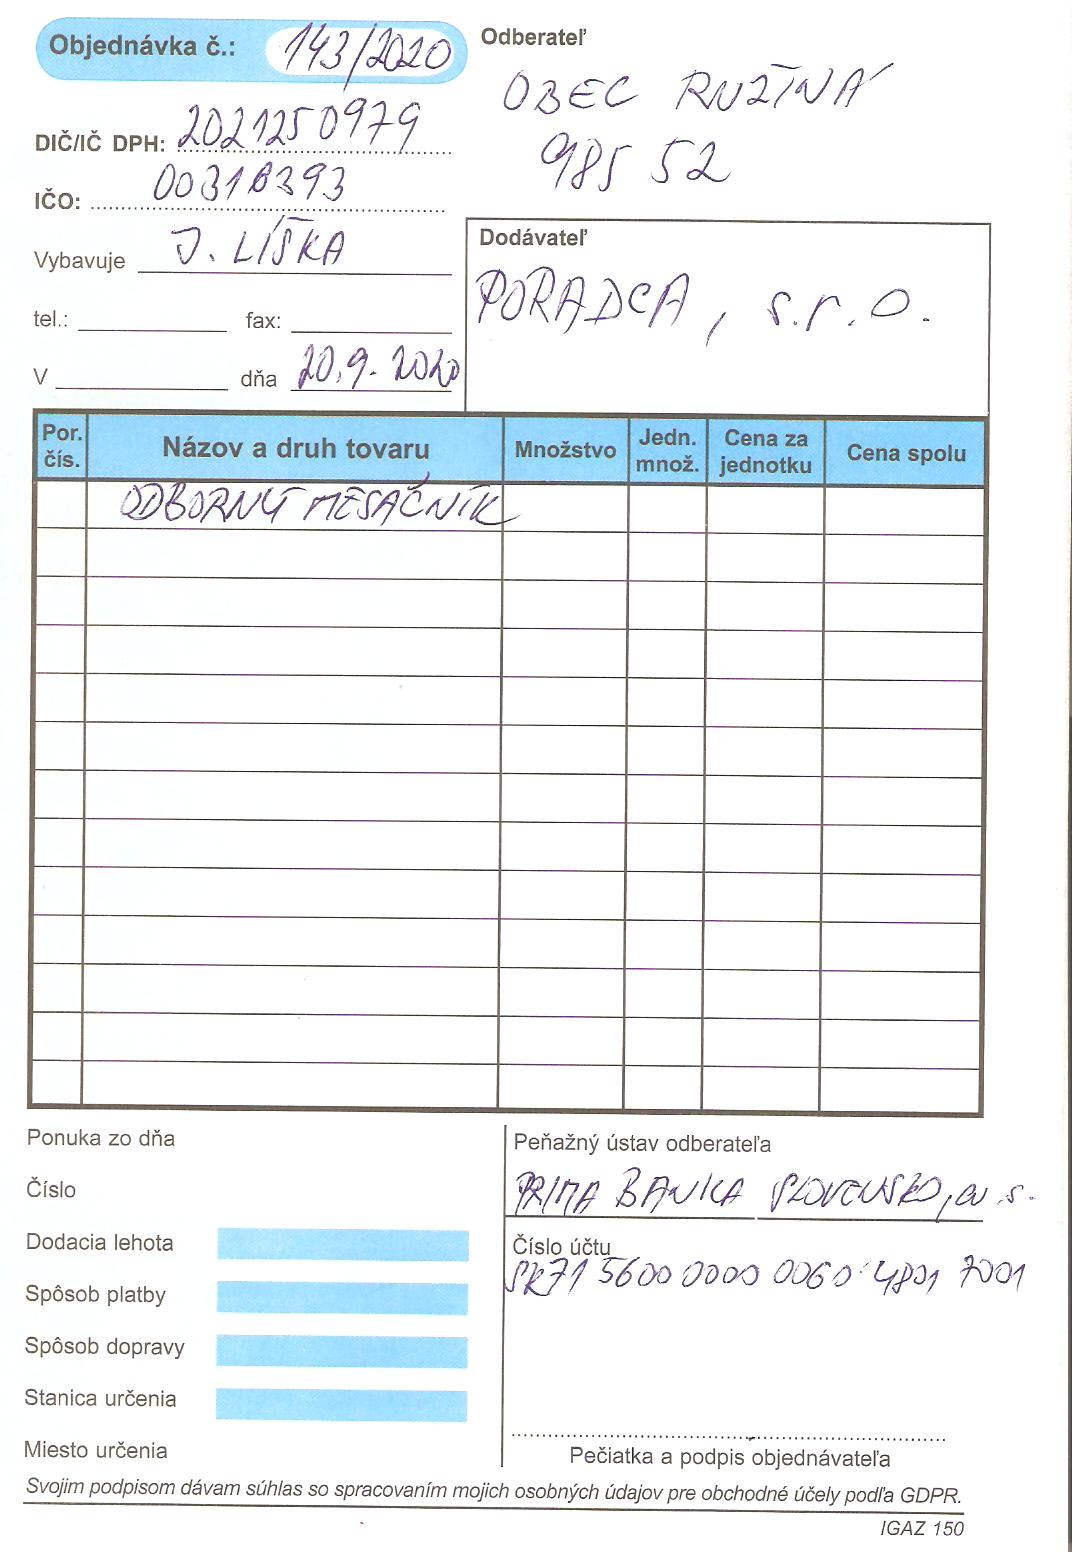 Objednávka č.: 143/2020
DIČ/IČ DPH: 2021250979
IČO: 00316393
Vybavuje J. LÍŠKA
tel.: fax:
V dňa 20.9.2020
Odberateľ
OBEC RUŽINÁ
985 52
Dodávateľ
PORADCA, s.r.o.
Por. čís. Názov a druh tovaru Množstvo Jedn. množ. Cena za jednotku Cena spolu
ODBORNÝ MESAČNÍK
Ponuka zo dňa
Číslo
Dodacia lehota
Spôsob platby
Spôsob dopravy
Stanica určenia
Miesto určenia
Peňažný ústav odberateľa
PRIMA BANKA SLOVENSKO, a.s.
Číslo účtu
SK71 5600 0000 0060 4801 7001
Pečiatka a podpis objednávateľa
Svojim podpisom dávam súhlas so spracovaním mojich osobných údajov pre obchodné účely podľa GDPR.
IGAZ 150